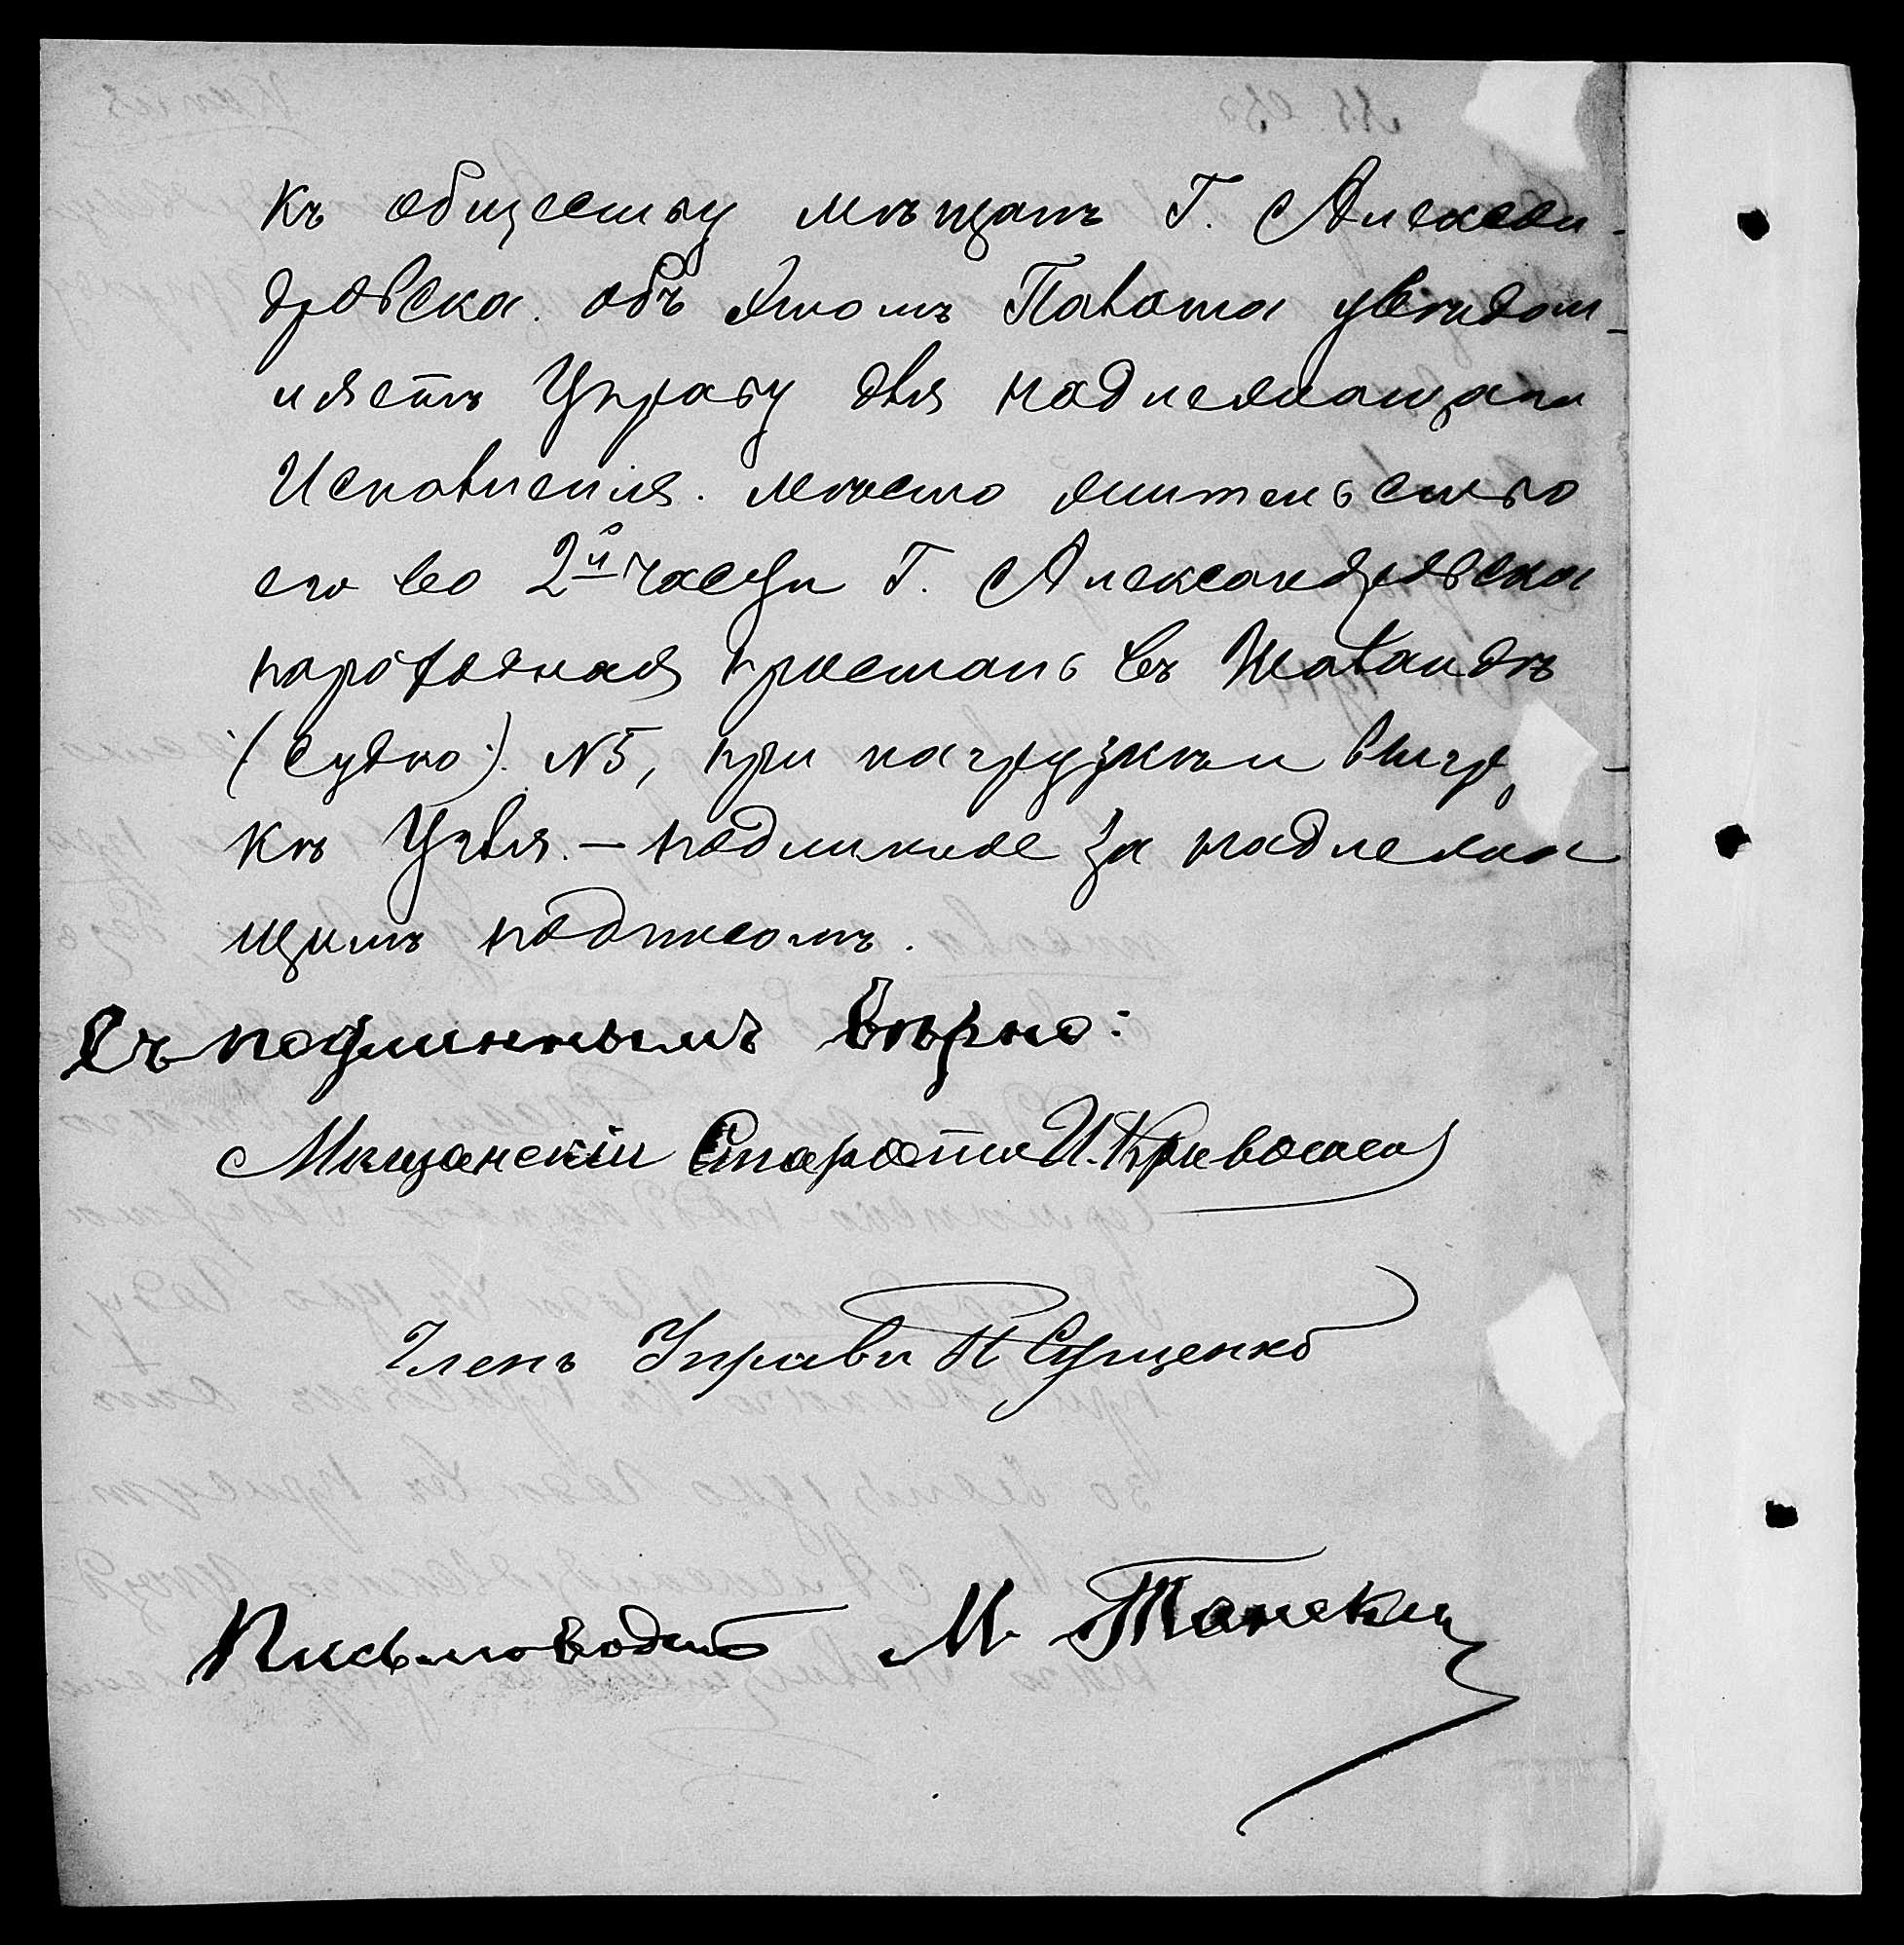 къ обществу мѣщанъ Г. Алексан-
дровска. объ этомъ Палата увѣдом-
ляетъ Управу для надлежащаго
Исполненія. мѣсто жительство
его во 2й части Г. Александровска
пароходная пристань въ Шаландѣ
(судно). №5, при нагрузкѣ и выгр
кѣ Угля. — подлинное за надлежа
щимъ подписомъ.
Съ подлиннымъ вѣрно:
Мѣщанскій Староста И. Кривошея
Членъ Управы П Сущенко
Письмоводит М. Танскій